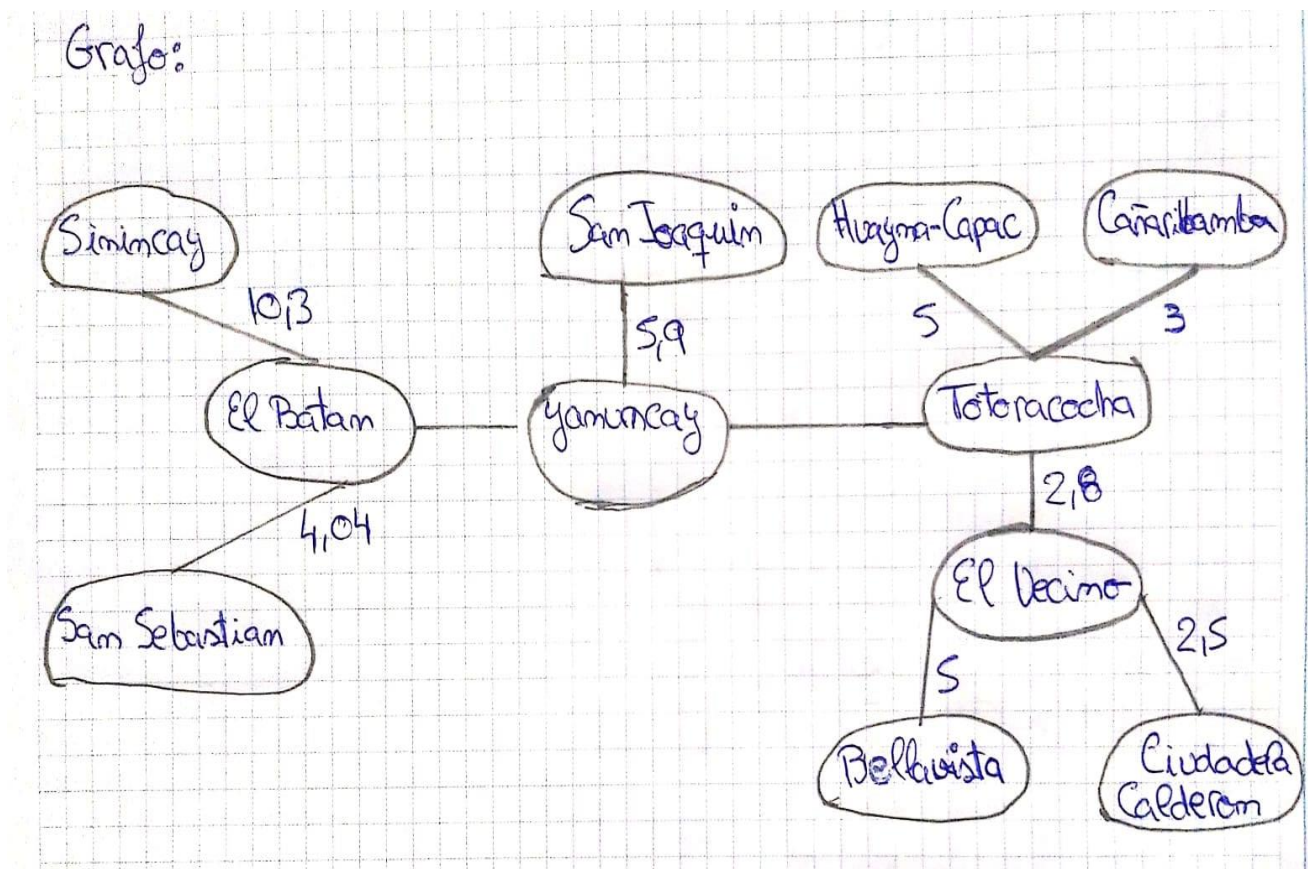 Grafo:
Sinincay
San Joaquin
Huayna-Capac
Cañaribamba
10,3
5,9
5
3
El Batan
Yanuncay
Totoracocha
2,8
4,04
El Vecino
San Sebastian
2,5
5
Bellavista
Ciudadela
Calderon